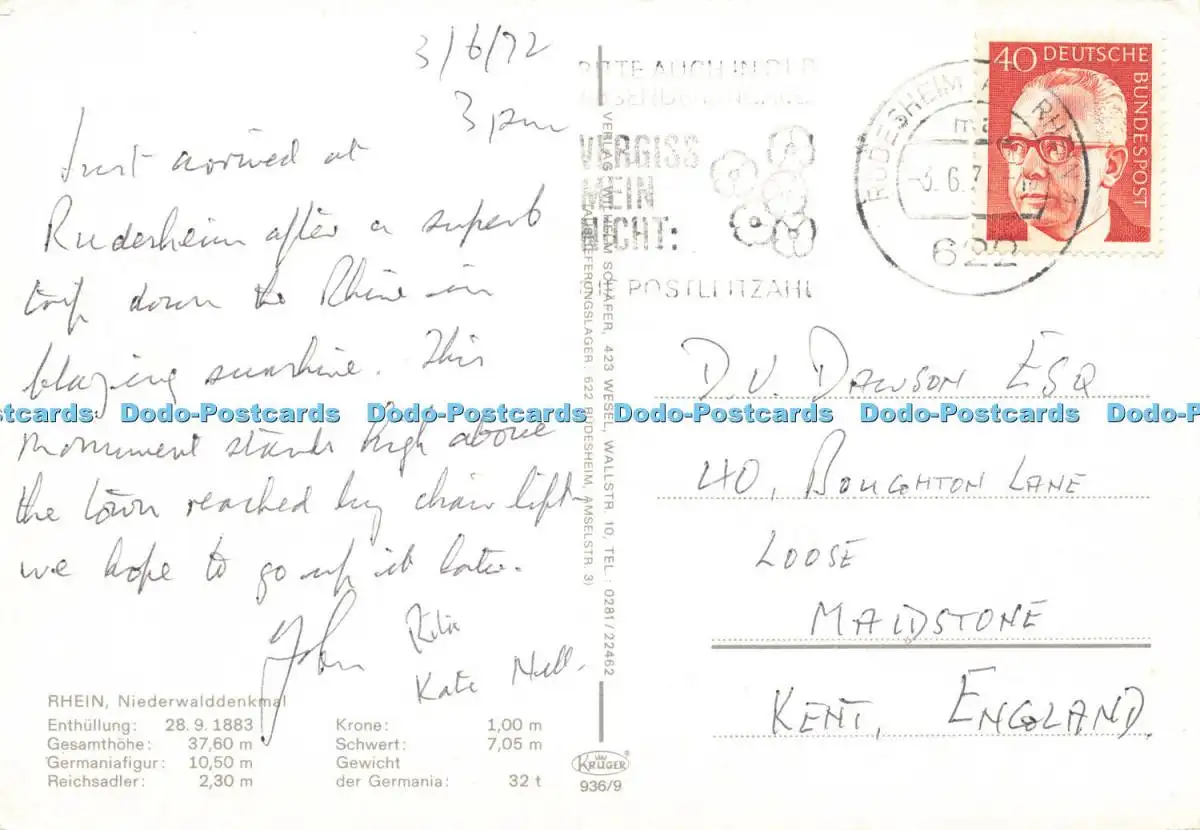 3/6/72
3 pm
Just arrived at
Rudesheim after a superb
trip down the Rhine in
blazing sunshine. This
monument stands high above
the town reached by chair lift
we hope to go up it later.
John
Kate
RHEIN, Niederwalddenkmal
Enthüllung: 28.9.1883
Gesamthöhe: 37,60 m
Germaniafigur: 10,50 m
Reichsadler: 2,30 m
Krone: 1,00 m
Schwert: 7,05 m
Gewicht
der Germania: 32 t
VERLAG: WILHELM SCHÄFER, 423 WESEL, WALLSTR. 10, TEL.: 0281/22462
622 RÜDESHEIM, AMSELSTR. 3)
KRÜGER
936/9
BITTE AUCH IN
VERGISS
MEIN
NICHT:
POSTLEITZAHL
RÜDESHEIM RHEIN
622
40 DEUTSCHE
BUNDESPOST
D.V. DAWSON ESQ
40, BOUGHTON LANE
LOOSE
MAIDSTONE
KENT, ENGLAND.
Dodo-Postcards Dodo-Postcards Dodo-Postcards Dodo-Postcards